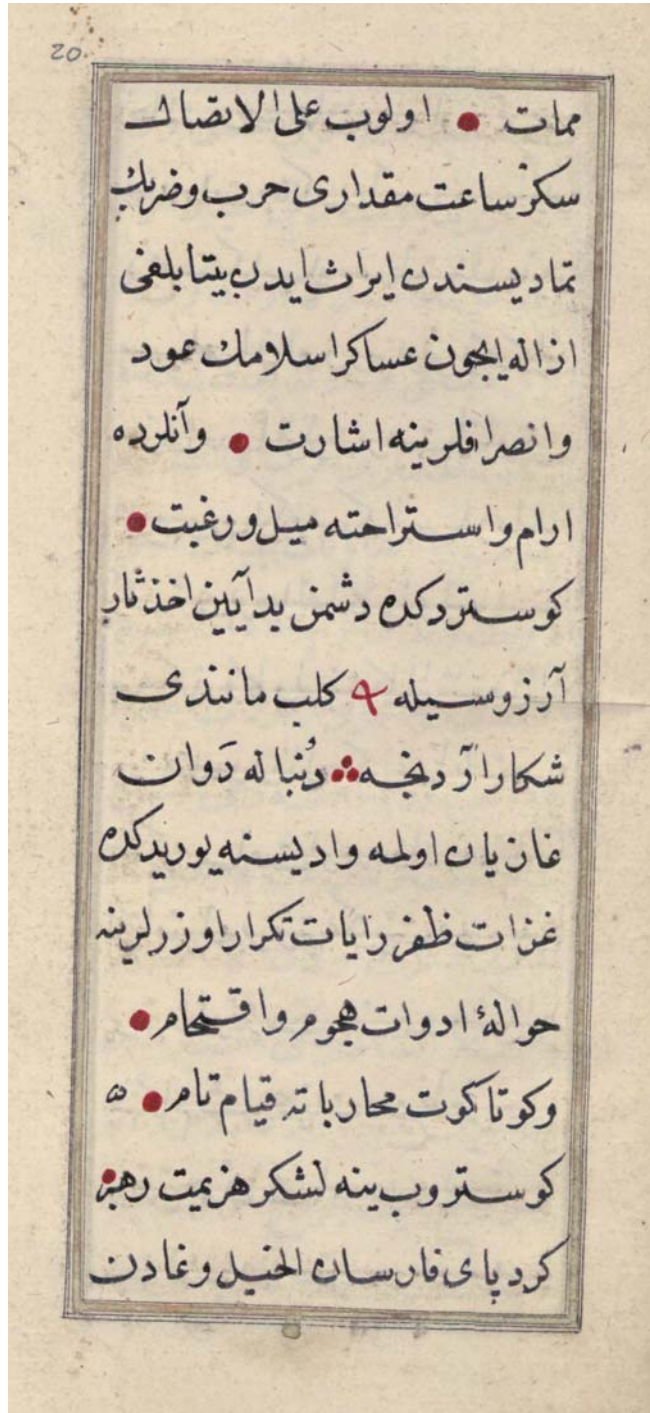 20
ممات • اولوب على الاتصال
سكز ساعت مقدارى حرب و ضربك
تماديسندن ايراث ايدن بيتابلغى
ازاله ايچون عساكر اسلامك عود
وانصرافلرينه اشارت • وآنلرده
ارام واستراحته ميل ورغبت •
كوستردكده دشمن بدآيين اخذ ثار
آرزوسيله كلب مانندى
شكار آردنجه ∴ دُنباله دَوان
غازيان اولمه واديسنه يوريدكده
غزات ظفر رايات تكرار اوزرلرينه
حوالۀ ادوات هجوم واقتحام •
وكوتاكوت محارباته قيام تام • ه
كوستروب ينه لشكر هزيمت رهبر
كرد پاى فارسان الخيل وغادن